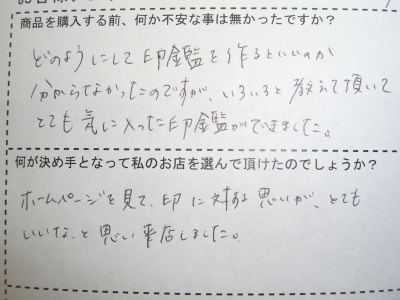 商品を購入する前、何か不安な事は無かったですか？
どのようにして印鑑を作るといいのか
分からなかったのですが、いろいろと教えて頂いて
とても気に入った印鑑ができました。
何が決め手となって私のお店を選んで頂けたのでしょうか？
ホームページを見て、印に対する思いが、とても
いいな、と思い来店しました。